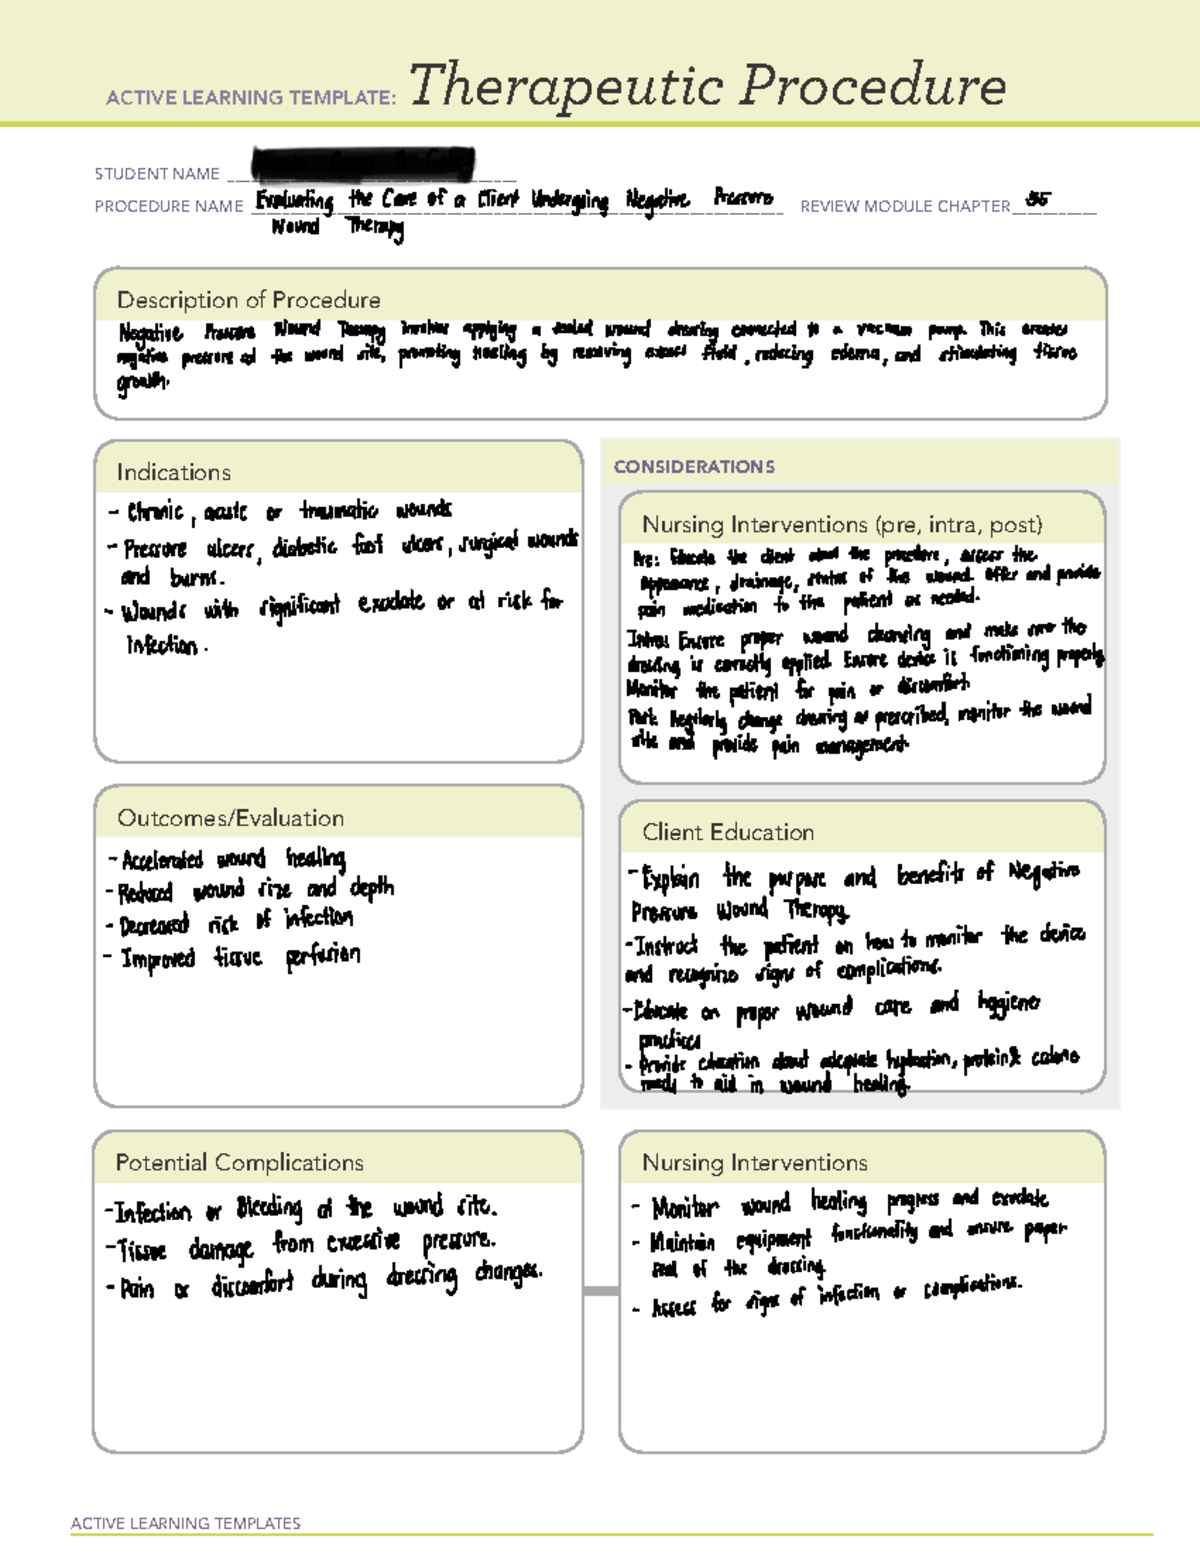 ACTIVE LEARNING TEMPLATE: Therapeutic Procedure
STUDENT NAME
PROCEDURE NAME Evaluating the Care of a Client Undergoing Negative Pressure
REVIEW MODULE CHAPTER 55
Wound Therapy
Description of Procedure
Negative Pressure Wound Therapy involves applying a sealed wound dressing connected to a vacuum pump. This creates
negative pressure at the wound site, promoting healing by removing excess fluid, reducing edema, and stimulating tissue
growth.
Indications
- Chronic, acute or traumatic wounds
- Pressure ulcers, diabetic foot ulcers, surgical wounds
and burns.
- Wounds with significant exudate or at risk for
infection.
CONSIDERATIONS
Nursing Interventions (pre, intra, post)
Pre: Educate the client about the procedure, assess the
appearance, drainage, status of the wound. Offer and provide
pain medication to the patient as needed.
Intra: Ensure proper wound cleansing and make sure the
dressing is correctly applied. Ensure device is functioning properly.
Monitor the patient for pain or discomfort.
Post: Regularly change dressing as prescribed, monitor the wound
site and provide pain management.
Outcomes/Evaluation
- Accelerated wound healing
- Reduced wound size and depth
- Decreased risk of infection
- Improved tissue perfusion
Client Education
- Explain the purpose and benefits of Negative
Pressure Wound Therapy.
- Instruct the patient on how to monitor the device
and recognize signs of complications.
- Educate on proper wound care and hygiene
practices
- Provide education about adequate hydration, protein & calorie
needs to aid in wound healing.
Potential Complications
- Infection or Bleeding at the wound site.
- Tissue damage from excessive pressure.
- Pain or discomfort during dressing changes.
Nursing Interventions
- Monitor wound healing progress and exudate
- Maintain equipment functionality and ensure paper
seal of the dressing.
- Assess for signs of infection or complications.
ACTIVE LEARNING TEMPLATES